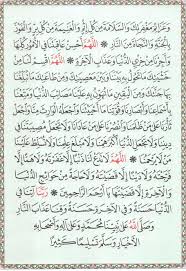 وَعَزَائِمَ مَغْفِرَتِكَ وَالسَّلَامَةَ مِنْ كُلِّ إِثْمٍ وَالْغَنِيمَةَ مِنْ كُلِّ بِرٍّ وَالْفَوْزَ
بِالْجَنَّةِ وَالنَّجَاةَ مِنَ النَّارِ اللَّهُمَّ أَحْسِنْ عَاقِبَتَنَا فِي الْأُمُورِ كُلِّهَا
وَأَجِرْنَا مِنْ خِزْيِ الدُّنْيَا وَعَذَابِ الْآخِرَةِ اللَّهُمَّ اقْسِمْ لَنَا مِنْ
خَشْيَتِكَ مَا
بِأَسْمَاعِنَا وَأَبْصَارِنَا وَقُوَّتِنَا مَا أَحْيَيْتَنَا وَاجْعَلْهُ الْوَارِثَ مِنَّا
وَاجْعَلْ ثَأْرَنَا عَلَى مَنْ عَادَانَا وَلَا تَجْعَلْ مُصِيبَتَنَا فِي
دِينِنَا وَلَا تَجْعَلِ الدُّنْيَا أَكْبَرَ هَمِّنَا وَلَا مَبْلَغَ عِلْمِنَا وَلَا تُسَلِّطْ عَلَيْنَا
مَنْ لَا يَرْحَمُنَا اللَّهُمَّ لَا تَدَعْ لَنَا ذَنْبًا إِلَّا غَفَرْتَهُ وَلَا هَمًّا إِلَّا
فَرَّجْتَهُ وَلَا دَيْنًا إِلَّا قَضَيْتَهُ وَلَا حَاجَةً مِنْ حَوَائِجِ الدُّنْيَا
وَالْآخِرَةِ إِلَّا قَضَيْتَهَا يَا أَرْحَمَ الرَّاحِمِينَ رَبَّنَا آتِنَا فِي
الدُّنْيَا حَسَنَةً وَفِي الْآخِرَةِ حَسَنَةً وَقِنَا عَذَابَ النَّارِ
وَصَلَّى اللَّهُ عَلَى نَبِيِّنَا مُحَمَّدٍ وَعَلَى آلِهِ وَأَصْحَابِهِ
الْأَخْيَارِ وَسَلَّمَ تَسْلِيمًا كَثِيرًا